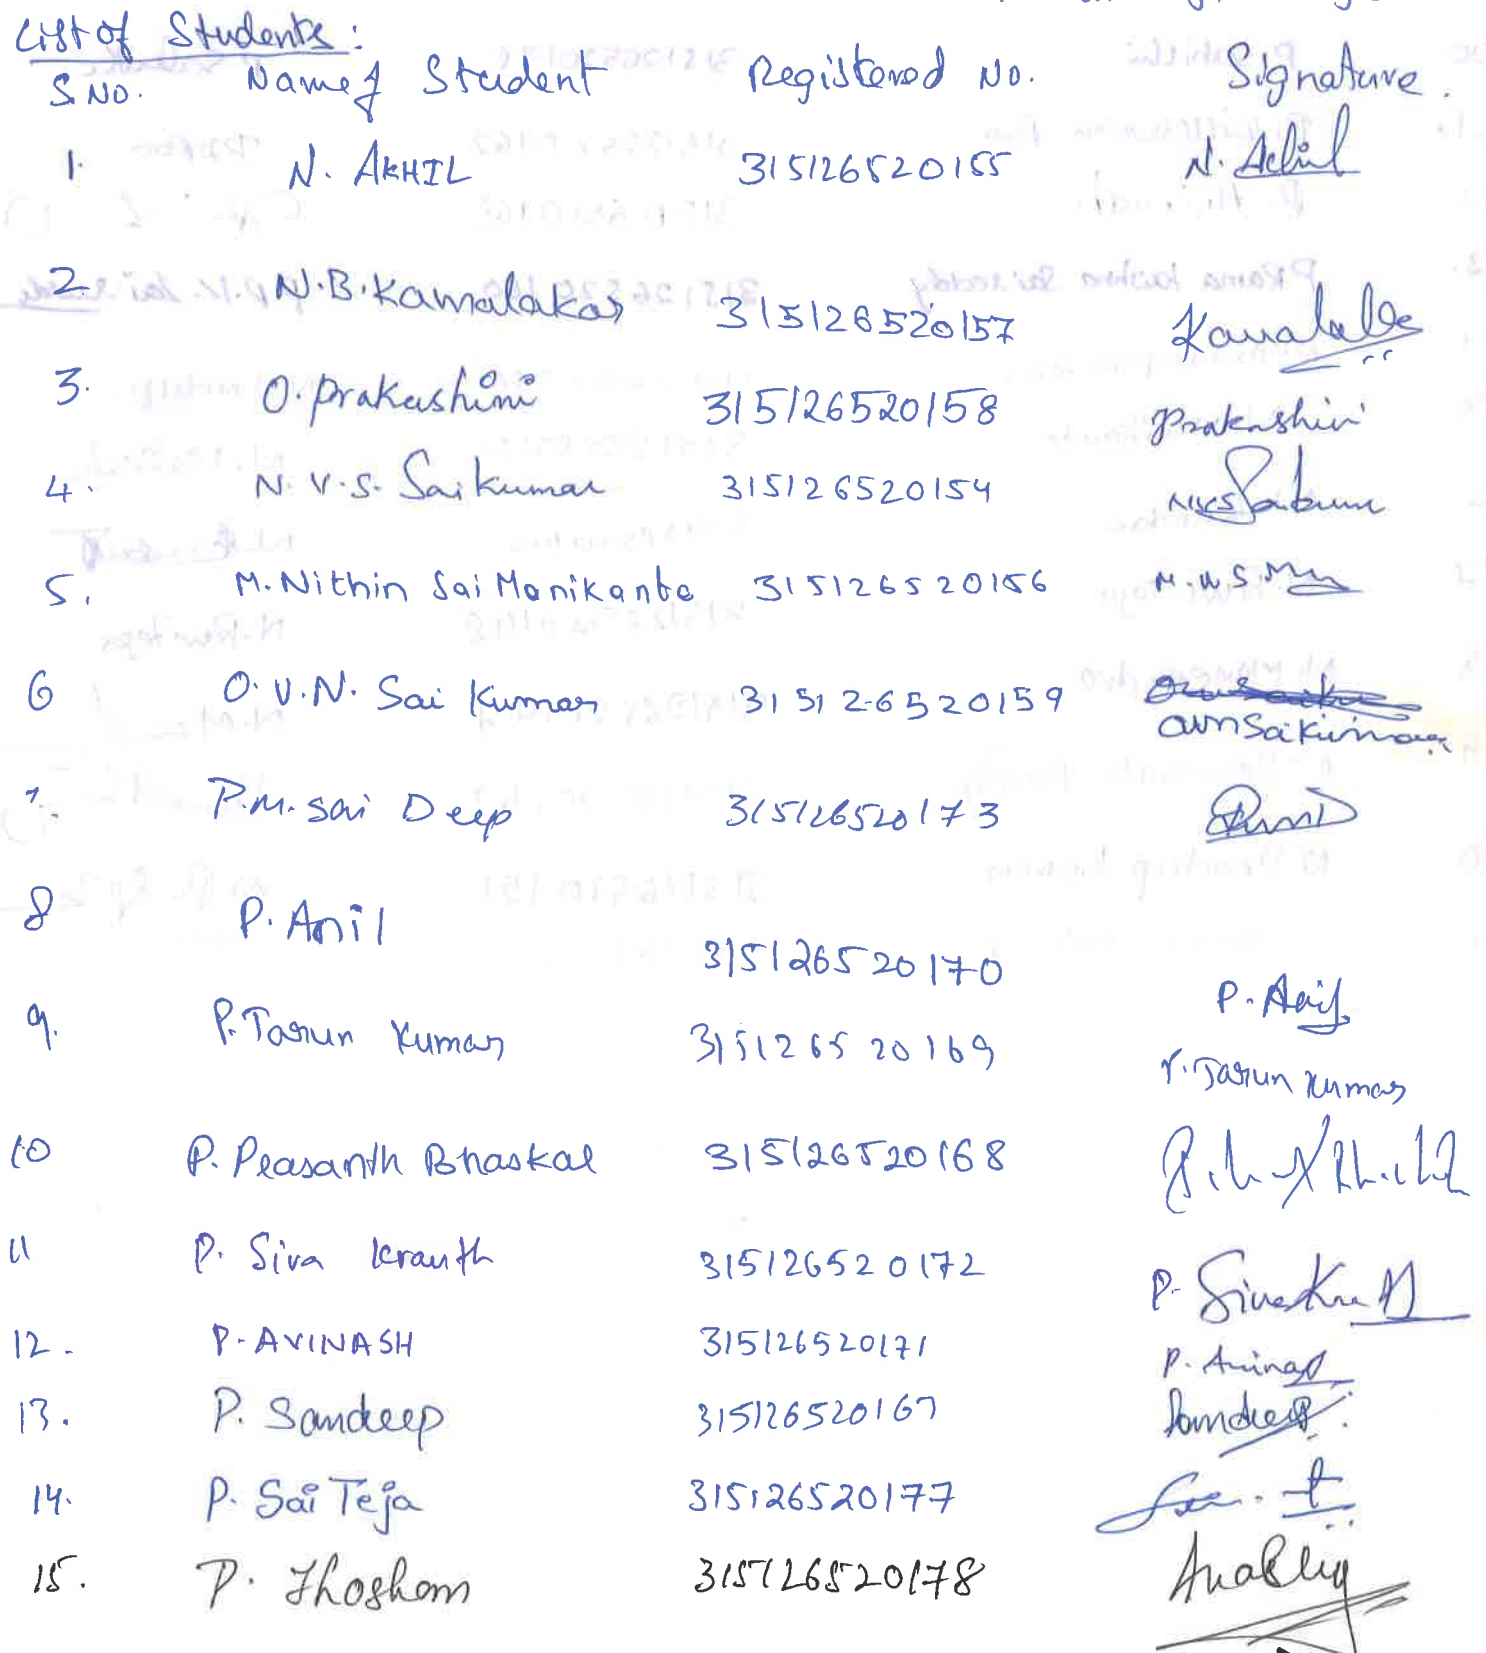 List of Students:
S.NO. Name of Student Registered No. Signature.
1. N. AKHIL 315126520155 N. Akhil
2. N.B.Kamalakar 315126520157
3. O.Prakashini 315126520158 Prakashini
4. N.V.S. Saikumar 315126520154
5. M.Nithin Sai Manikanta 315126520156 M.N.S.
6 O.V.N. Sai Kumar 315126520159 OVNSaiKumar
7. P.M.Sai Deep 315126520173
8 P.Anil 315126520170 P.Anil
9. P.Tarun Kumar 315126520169 P.Tarun Kumar
10 P. Prasanth Bhaskar 315126520168
11 P. Siva Kranth 315126520172 P. Siva
12. P.AVINASH 315126520171 P. Avinash
13. P. Sandeep 315126520167 Sandeep
14. P. Sai Teja 315126520177
15. P. 315126520178